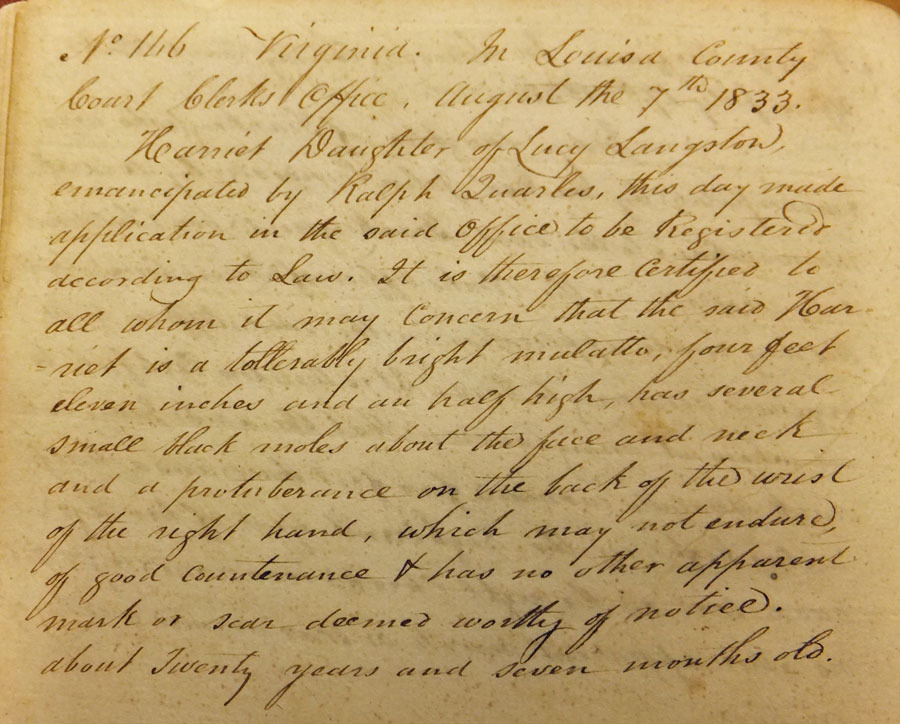 No 146 Virginia. In Louisa County
Court Clerks Office, August the 7th 1833.
Harriet Daughter of Lucy Langston,
emancipated by Ralph Quarles, this day made
application in the said Office to be Registered
according to Law. It is therefore Certified to
all whom it may Concern that the said Har-
-riet is a tollerably bright mulatto, four feet
eleven inches and an half high, has several
small black moles about the face and neck
and a protuberance on the back of the wrist
of the right hand, which may not endure,
of good Countenance & has no other apparent
mark or scar deemed worthy of notice.
about Twenty years and seven months old.